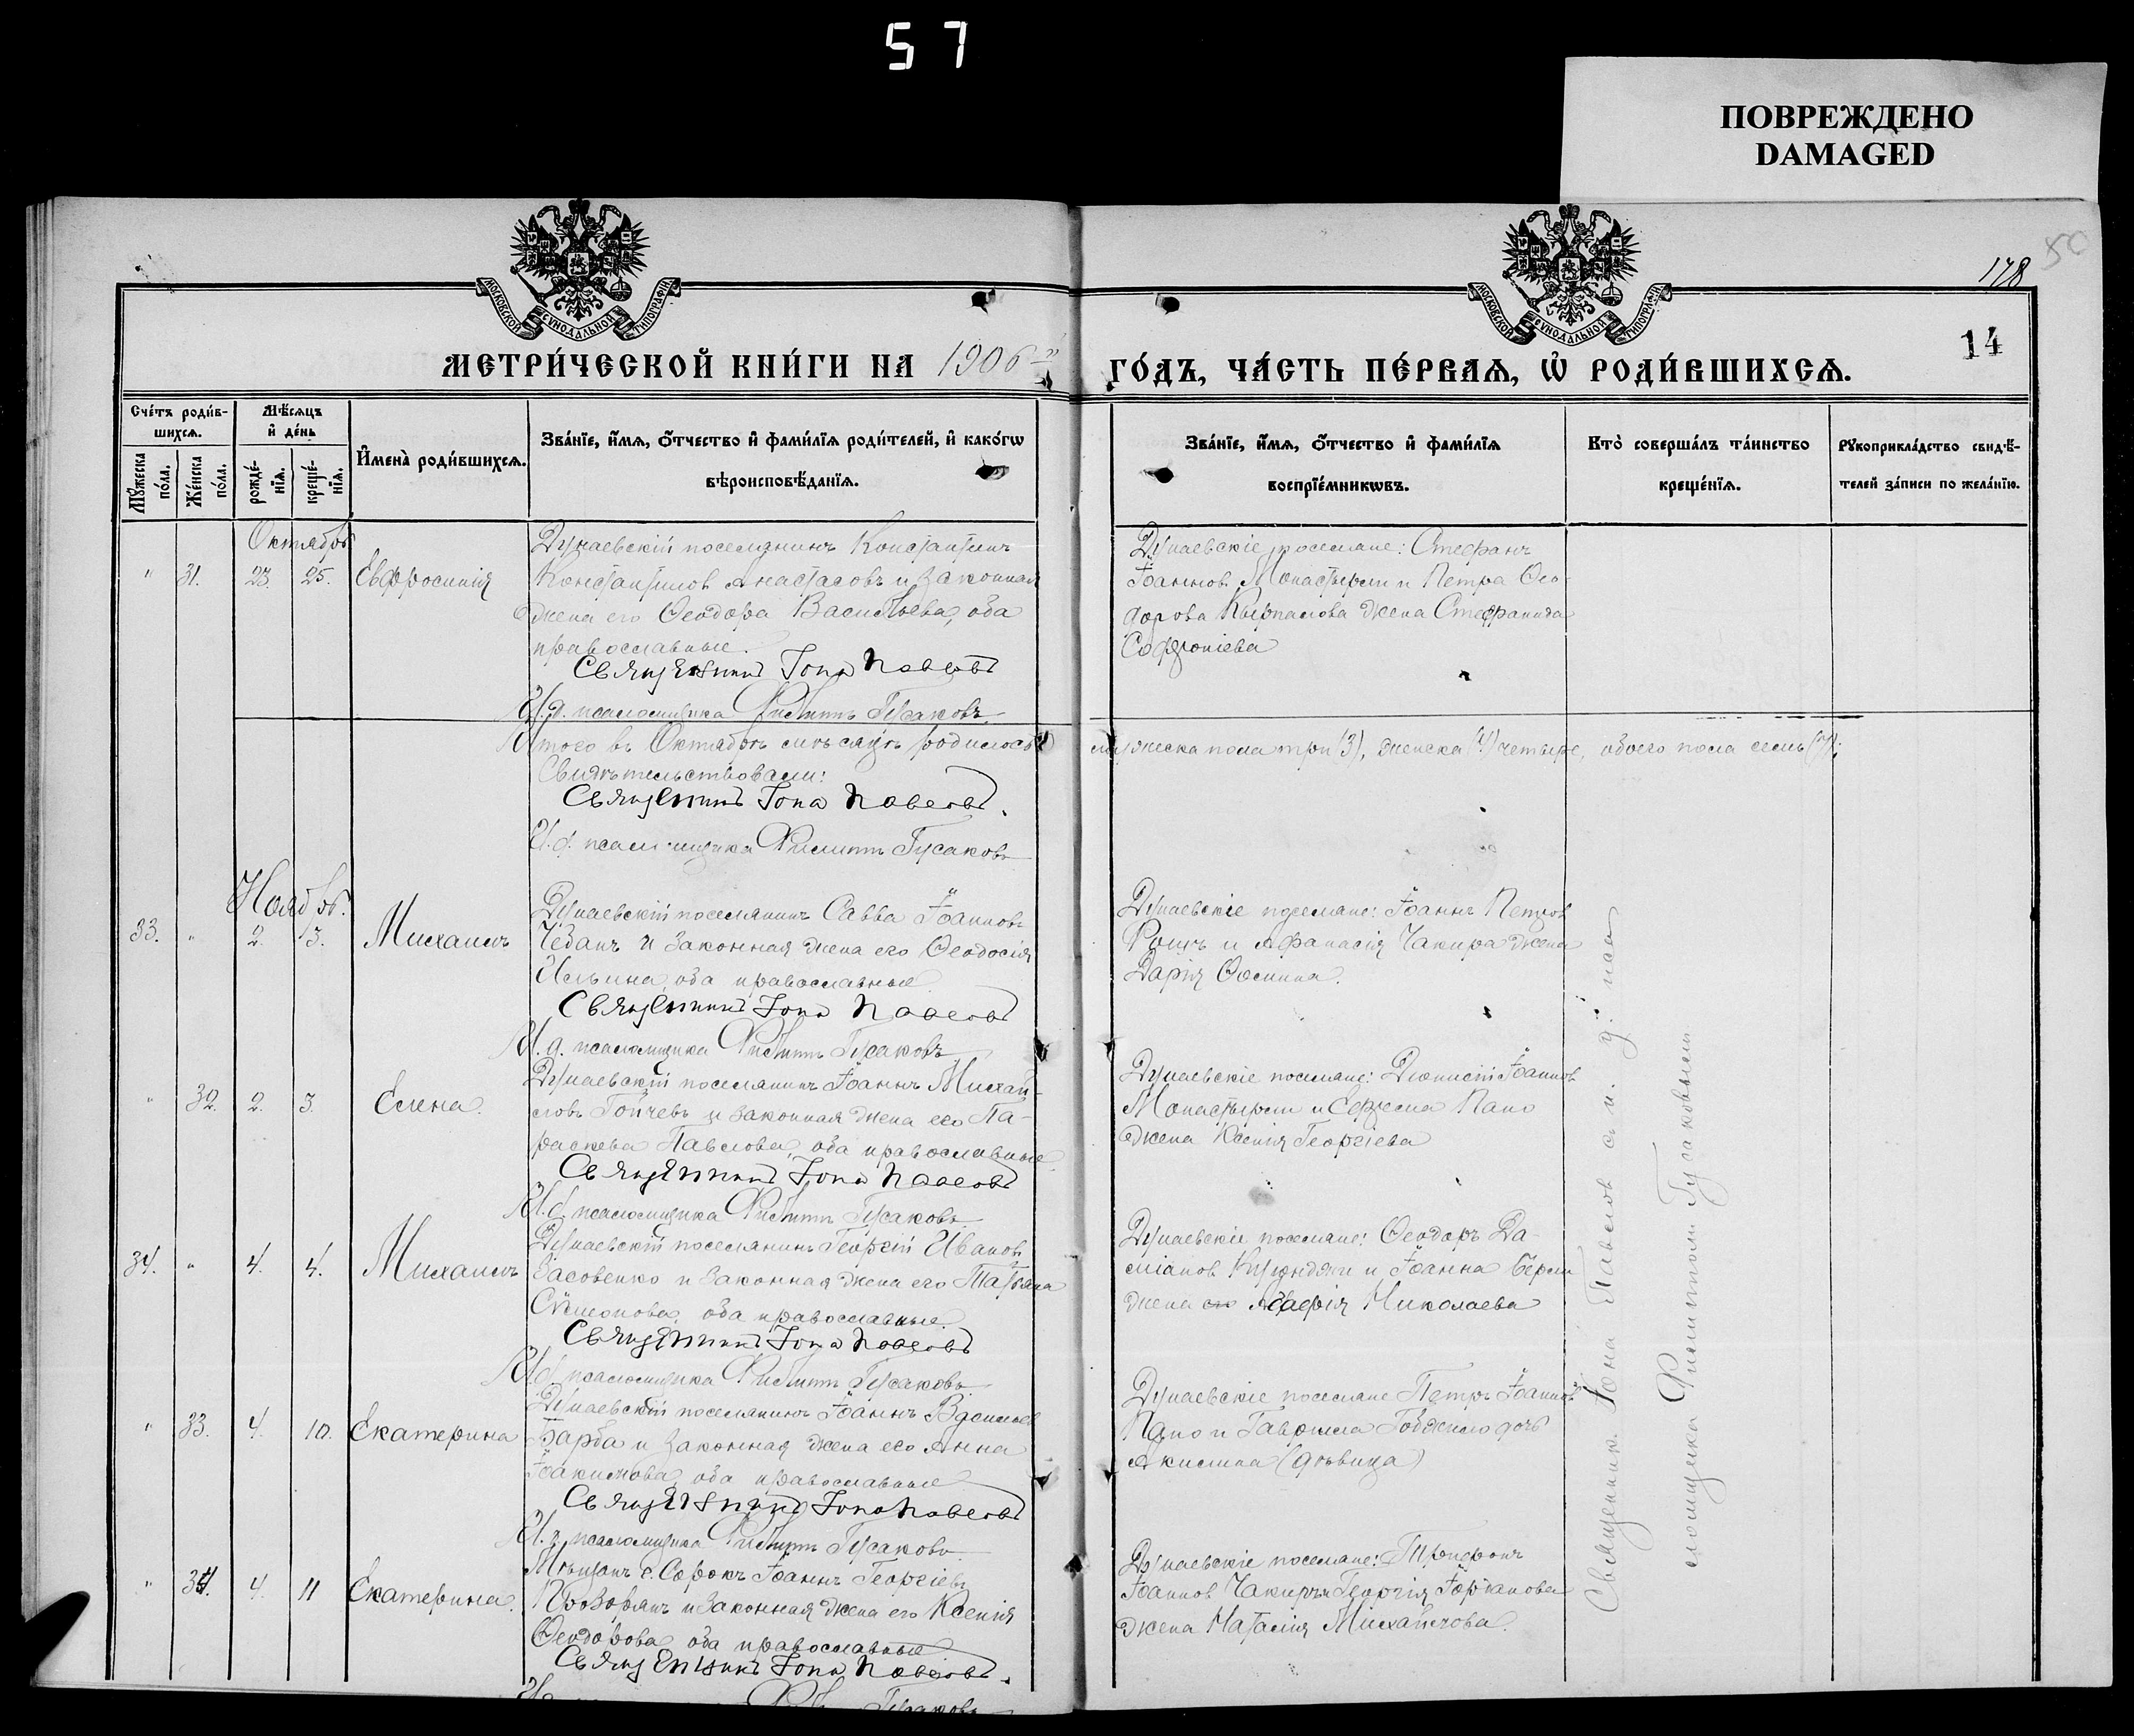 57
ПОВРЕЖДЕНО
DAMAGED
50
178
14
МОСКОВСКОЙ СѴНОДАЛЬНОЙ ТИПОГРАФІИ
МОСКОВСКОЙ СѴНОДАЛЬНОЙ ТИПОГРАФІИ
МЕТРИ́ЧЕСКОЙ КНИ́ГИ НА 1906 ГО́ДЪ, ЧА́СТЬ ПЕ́РВАѦ, Ѡ҆ РОДИ́ВШИХСѦ.
Сче́тъ роди́в-
шихсѧ.
Мꙋ́жеска по́ла.
Же́нска по́ла.
Мѣ́сѧцъ
и҆ де́нь
рожде́-
нїѧ.
креще́-
нїѧ.
И҆мена̀ роди́вшихсѧ.
Зва́нїе, и҆́мѧ, ѻ҆́тчество и҆ фами́лїѧ роди́телей, и҆ како́гѡ
вѣроисповѣ́данїѧ.
Зва́нїе, и҆́мѧ, ѻ҆́тчество и҆ фами́лїѧ
воспрїе́мникѡвъ.
Кто̀ соверша́лъ та́инство
креще́нїѧ.
Рꙋкоприкла́дство свидѣ́-
телей за́писи по жела́нїю.
Октябрь
" 31. 23. 25. Евфросинія
Дунаевскій поселянинъ Константинъ
Константинов Анастасовъ и законная
жена его Ѳеодора Васильева, оба
православные.
Священникъ Іона Павловъ
И. д. псаломщика Филиппъ Гусаковъ
Дунаевскіе поселяне: Стефанъ
Іоаннов Монастырли и Петра Ѳео-
дорова жена Стефанида
Софроніева
Итого въ Октябрѣ мѣсяцѣ родилось мужеска пола три (3), женска (4) четыре, обоего пола семь (7);
Свидѣтельствовали:
Священникъ Іона Павловъ.
И. д. псаломщика Филиппъ Гусаковъ
Ноябрь.
33. " 2. 3. Михаилъ
Дунаевскій поселянинъ Савва Іоаннов
Чебанъ и законная жена его Ѳеодосія
Ильина, оба православные
Священникъ Іона Павловъ
И. д. псаломщика Филиппъ Гусаковъ
Дунаевскіе поселяне: Іоаннъ Петров
и Афанасія Чакира жена
Дарія
" 32. 2. 3. Елена.
Дунаевскій поселянинъ Іоаннъ Михай-
ловъ Гойчевъ и законная жена его Па-
раскева Павлова, оба православные.
Священникъ Іона Павловъ
И. д. псаломщика Филиппъ Гусаковъ
Дунаевскіе поселяне: Діонисій Іоаннов
Монастырли и Пано
жена Ксенія Георгіева
34. " 4. 4. Михаилъ
Дунаевскій поселянинъ Георгій Иванов
Засовенко и законная жена его Татьяна
Симеонова, оба православные.
Священникъ Іона Павловъ
И. д. псаломщика Филиппъ Гусаковъ
Дунаевскіе поселяне: Ѳеодоръ Да-
міанов и Іоанна
жена Николаева
" 33. 4. 10. Екатерина
Дунаевскій поселянинъ Іоаннъ Васильев
Барба и законная жена его Анна
Іоакимова, оба православные
Священникъ Іона Павловъ
И. д. псаломщика Филиппъ Гусаковъ
Дунаевскіе поселяне Петръ Іоаннов
Пано и Гавриила дочь
Акилина (дѣвица)
" 34. 4. 11 Екатерина.
Мѣщанъ г. Сорокъ Іоаннъ Георгіев
и законная жена его Ксенія
Ѳеодорова, оба православные
Священникъ Іона Павловъ.
Гусаковъ
Дунаевскіе поселяне: Трифонъ
Іоаннов Чакиръ и Георгія
жена Наталія Михайлова.
Священник Іона Павлов с и. д. пса-
ломщика Филиппом Гусаковым